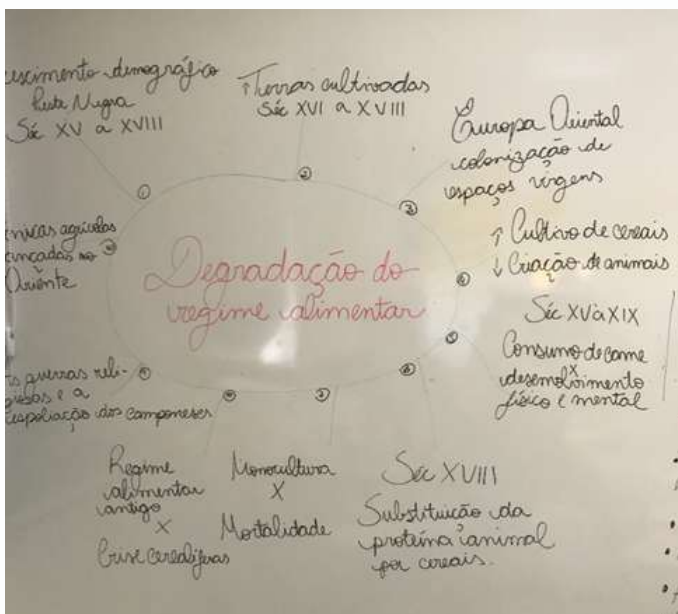 escimento demográfico
Peste Negra
Séc XV a XVIII
①
↑Terras cultivadas
Séc XVI a XVIII
②
Europa Oriental
colonização de
espaços virgens
③
↑ Cultivo de cereais
↓ Criação de animais
④
Séc XV à XIX
Consumo de carne
x
desenvolvimento
físico e mental
⑤
Séc XVIII
Substituição da
proteína animal
por cereais.
⑥
Monocultura
X
Mortalidade
⑦
Regime
alimentar
antigo
X
Crise cerealíferas
⑧
as guerras reli-
giosas e a
espoliação dos camponeses
⑨
nicas agrícolas
ançadas no
Oriente
⑩
Degradação do
regime alimentar